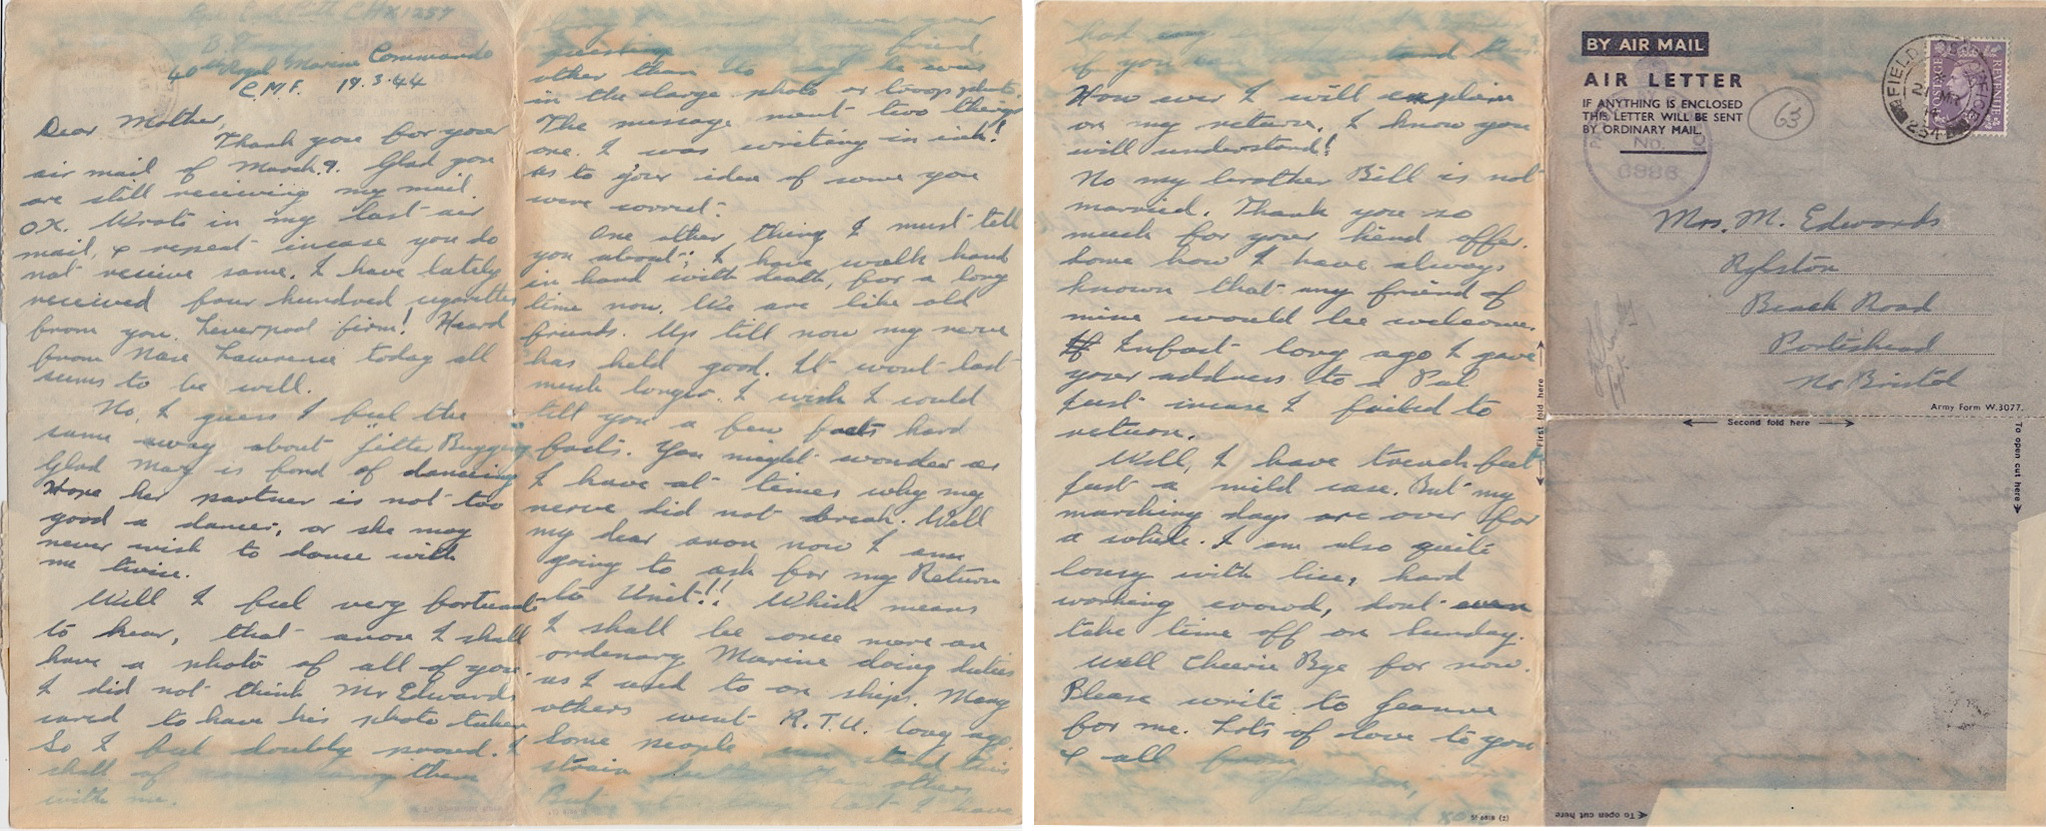 CHX1257
B. Troop
40th Royal Marine Commando
C.M.F. 19.3.44
Dear Mother,
Thank you for your
air mail of March.9. Glad you
are still receiving my mail
O.K. Wrote in my last air
mail, & repeat incase you do
not receive same. I have lately
received four hundred cigarettes
from you. Liverpool firm! Heard
from Lawrence today all
seems to be well.
No, I guess I feel the
same away about "jitter Bugging
Glad Mary is fond of dancing
Hope her partner is not too
good a dancer, or she may
never wish to dance with
me twice.
Well I feel very fortunate
to hear, that anon I shall
have a photo of all of you
I did not think Mr Edwards
cared to have his photo taken
So I feel doubly proved. I
shall of them
with me.
your
question my friend,
other than to say he was
in the large photo or troop photo.
The message ment two things
one. I was writing in ink!
As to your idea of some you
were correct.
One other thing I must tell
you about; I have walk hand
in hand with death, for a long
time now. We are like old
friends. Up till now my nerve
has held good. It wont last
much longer. I wish I could
tell you a few facts hard
facts. You might wonder as
I have at times why my
nerve did not break. Well
my dear anon now I am
going to ask for my Return
to Unit!! Which means
I shall be once more an
ordenary Marine doing duties
as I used to on ships. Many
others went R.T.U. long ago.
Some people can stand this
strain better than others
But at long last I have
had my
if you can understand this.
How ever I will explain
on my return. I know you
will understand!
No my brother Bill is not
married. Thank you so
much for your kind offer.
Some how I have always
known that my friend of
mine would be welcome.
Infact long ago I gave
your address to a Pal
just incase I failed to
return.
Well, I have trench feet
just a mild case. But my
marching days are over for
a while. I am also quite
lousy with lice, hard
working crowd, dont even
take time off on Sunday.
Well Cheerie Bye for now.
Please write to Jeanne
for me. Lots of love to you
& all from
Son,
Edward xxx
BY AIR MAIL
AIR LETTER
IF ANYTHING IS ENCLOSED
THIS LETTER WILL BE SENT
BY ORDINARY MAIL.
63
No.
FIELD POST OFFICE
21 MR
254
POSTAGE
REVENUE
Mrs. M. Edwards
Rylston
Beach Road
Portishead
Nr Bristol
Army Form W.3077.
First fold here
Second fold here
To open cut here
To open cut here